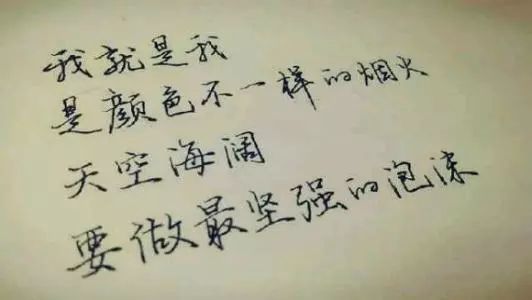 我就是我
是颜色不一样的烟火
天空海阔
要做最坚强的泡沫